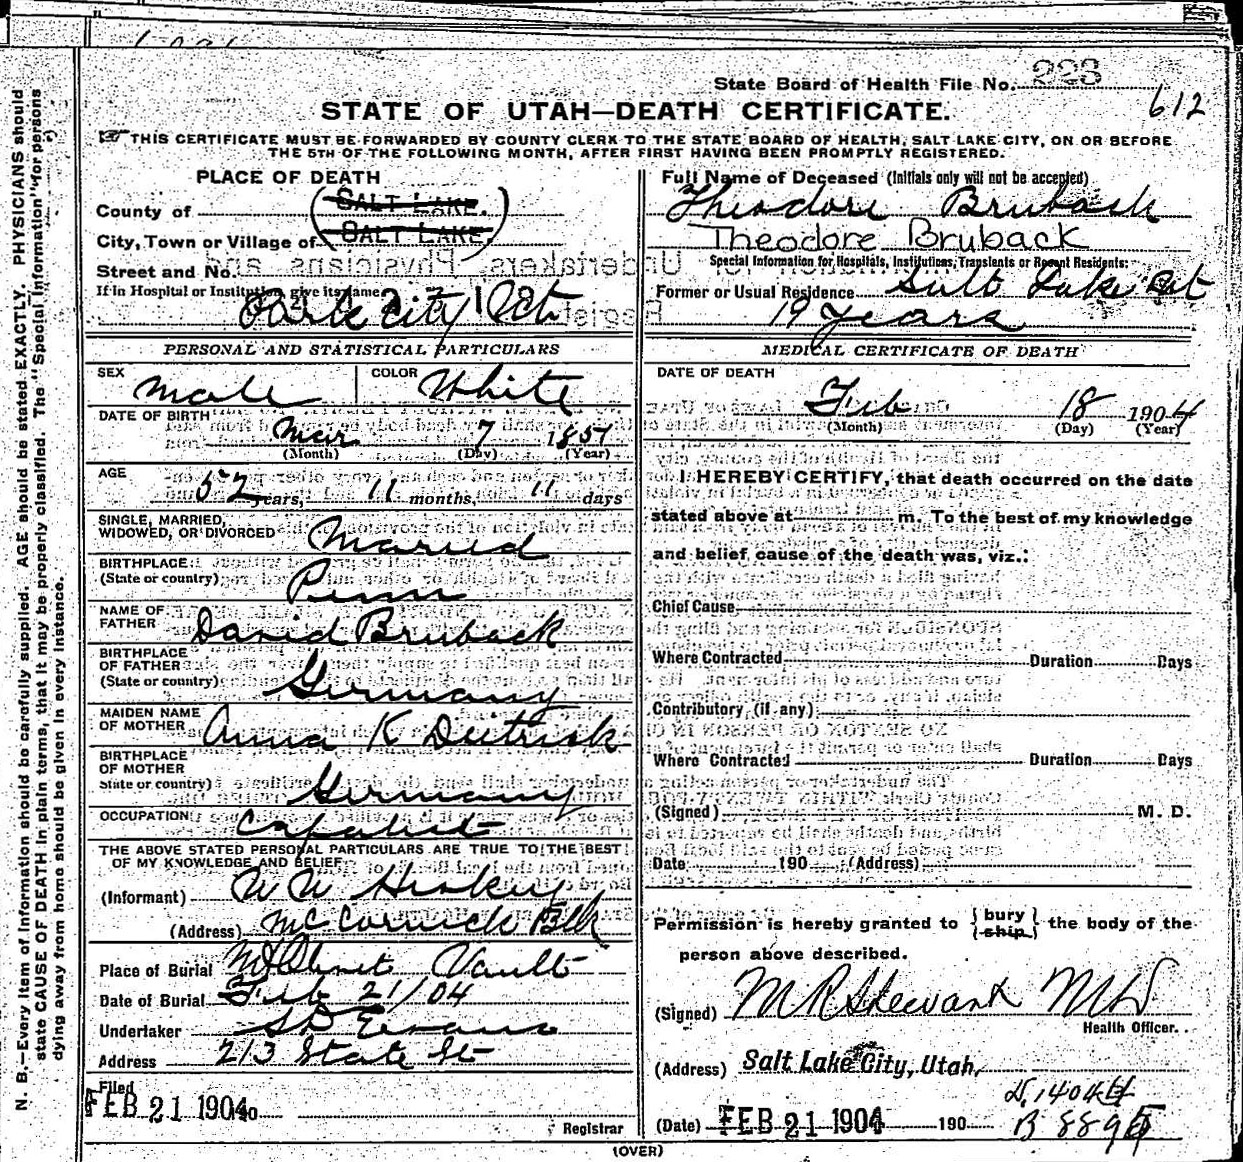 State Board of Health File No. 223
612
STATE OF UTAH—DEATH CERTIFICATE.
THIS CERTIFICATE MUST BE FORWARDED BY COUNTY CLERK TO THE STATE BOARD OF HEALTH, SALT LAKE CITY, ON OR BEFORE
THE 5TH OF THE FOLLOWING MONTH, AFTER FIRST HAVING BEEN PROMPTLY REGISTERED.
PLACE OF DEATH
County of SALT LAKE.
City, Town or Village of SALT LAKE,
Street and No.
If in Hospital or Institution, give its name
Park City Ut
Full Name of Deceased (Initials only will not be accepted)
Theodore Bruback
Theodore Bruback
Special Information for Hospitals, Institutions, Transients or Recent Residents:
Former or Usual Residence Salt Lake
19 years
PERSONAL AND STATISTICAL PARTICULARS
SEX Male COLOR White
DATE OF BIRTH Mar 7 1851
(Month) (Day) (Year)
AGE 52 years, 11 months, 11 days
SINGLE, MARRIED,
WIDOWED, OR DIVORCED Married
BIRTHPLACE
(State or country) Penn
NAME OF
FATHER David Bruback
BIRTHPLACE
OF FATHER
(State or country) Germany
MAIDEN NAME
OF MOTHER Anna K Deitrick
BIRTHPLACE
OF MOTHER
State or country) Germany
OCCUPATION Capalist
THE ABOVE STATED PERSONAL PARTICULARS ARE TRUE TO THE BEST
OF MY KNOWLEDGE AND BELIEF
(Informant) W W
(Address) McCornick Blk
Place of Burial Mt Olivet Vault
Date of Burial Feb 21/04
Undertaker S D Evans
Address 213 State St
Filed
FEB 21 1904 190
Registrar
MEDICAL CERTIFICATE OF DEATH
DATE OF DEATH
Feb 18 1904
(Month) (Day) (Year)
I HEREBY CERTIFY, that death occurred on the date
stated above at m. To the best of my knowledge
and belief, cause of the death was, viz.:
Chief Cause
Where Contracted Duration Days
Contributory (if any)
Where Contracted Duration Days
(Signed) M. D.
Date 190 (Address)
Permission is hereby granted to { bury ship } the body of the
person above described.
(Signed) M R Stewart MD
Health Officer.
(Address) Salt Lake City, Utah,
D. 1404
B 889
(Date) FEB 21 1904 190
(OVER)
N. B.—Every item of information should be carefully supplied. AGE should be stated EXACTLY. PHYSICIANS should
state CAUSE OF DEATH in plain terms, that it may be properly classified. The "Special Information" for persons
dying away from home should be given in every instance.